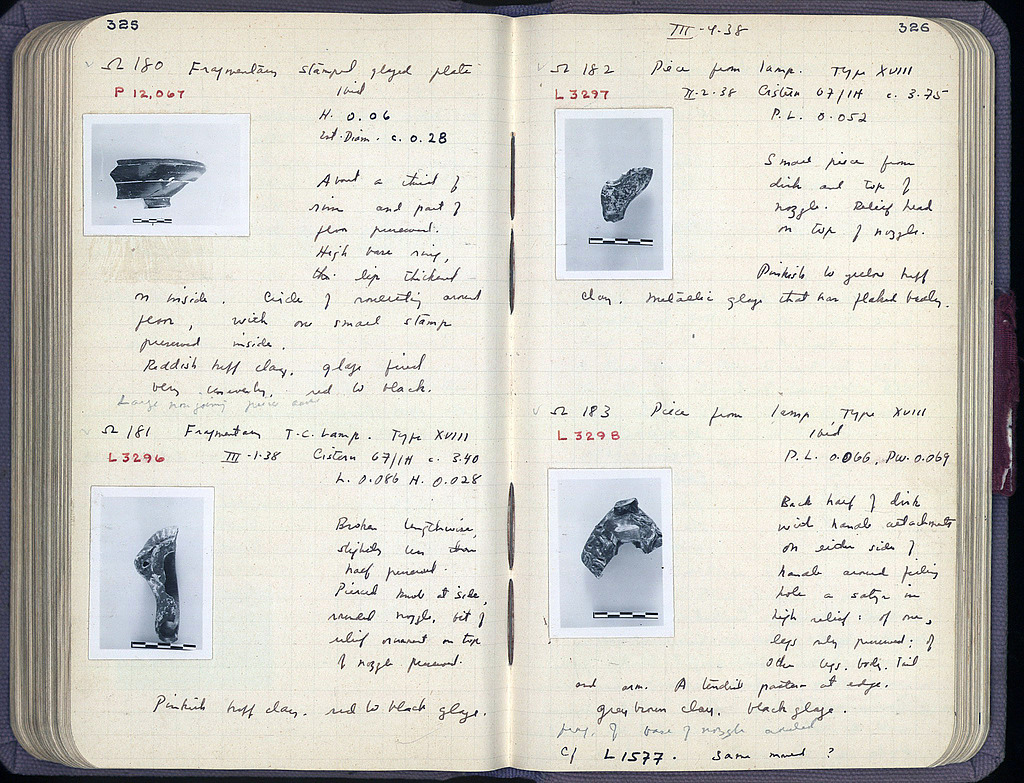 325
Ω 180 Fragmentary stamped glazed plate
P 12,067 Ibid
H. 0.06
Est. Diam. c. 0.28
About a third of
rim and part of
floor preserved.
High base ring,
the lip thickened
on inside. Circle of rouletting around
floor, with one small stamp
preserved inside.
Reddish buff clay, glaze fired
very unevenly, red to black.
Large non joining piece added
Ω 181 Fragmentary T.C. Lamp. Type XVIII
L 3296 III-1-38 Cistern 67/ΙΗ c. 3.40
L. 0.086 H. 0.028
Broken lengthwise,
slightly less than
half preserved.
Pierced knob at side,
round nozzle, bit of
relief ornament on top
of nozzle preserved.
Pinkish buff clay. red to black glaze.
III-4-38
326
Ω 182 Piece from lamp. Type XVIII
L 3297 II-2-38 Cistern 67/ΙΗ c. 3.75
P.L. 0.052
Small piece from
disk and top of
nozzle. Relief head
on top of nozzle.
Pinkish to yellow buff
clay. Metallic glaze that has flaked badly.
Ω 183 Piece from lamp Type XVIII
L 3298 Ibid
P.L. 0.066, PW. 0.069
Back half of disk
with handle attachments
on either side of
handle around filling
hole a satyr in
high relief: of one,
legs only preserved; of
other legs, body, tail
and arm. A tendril pattern at edge.
grey brown clay. black glaze.
frag. of base of nozzle added
Cf L 1577. Same mould?